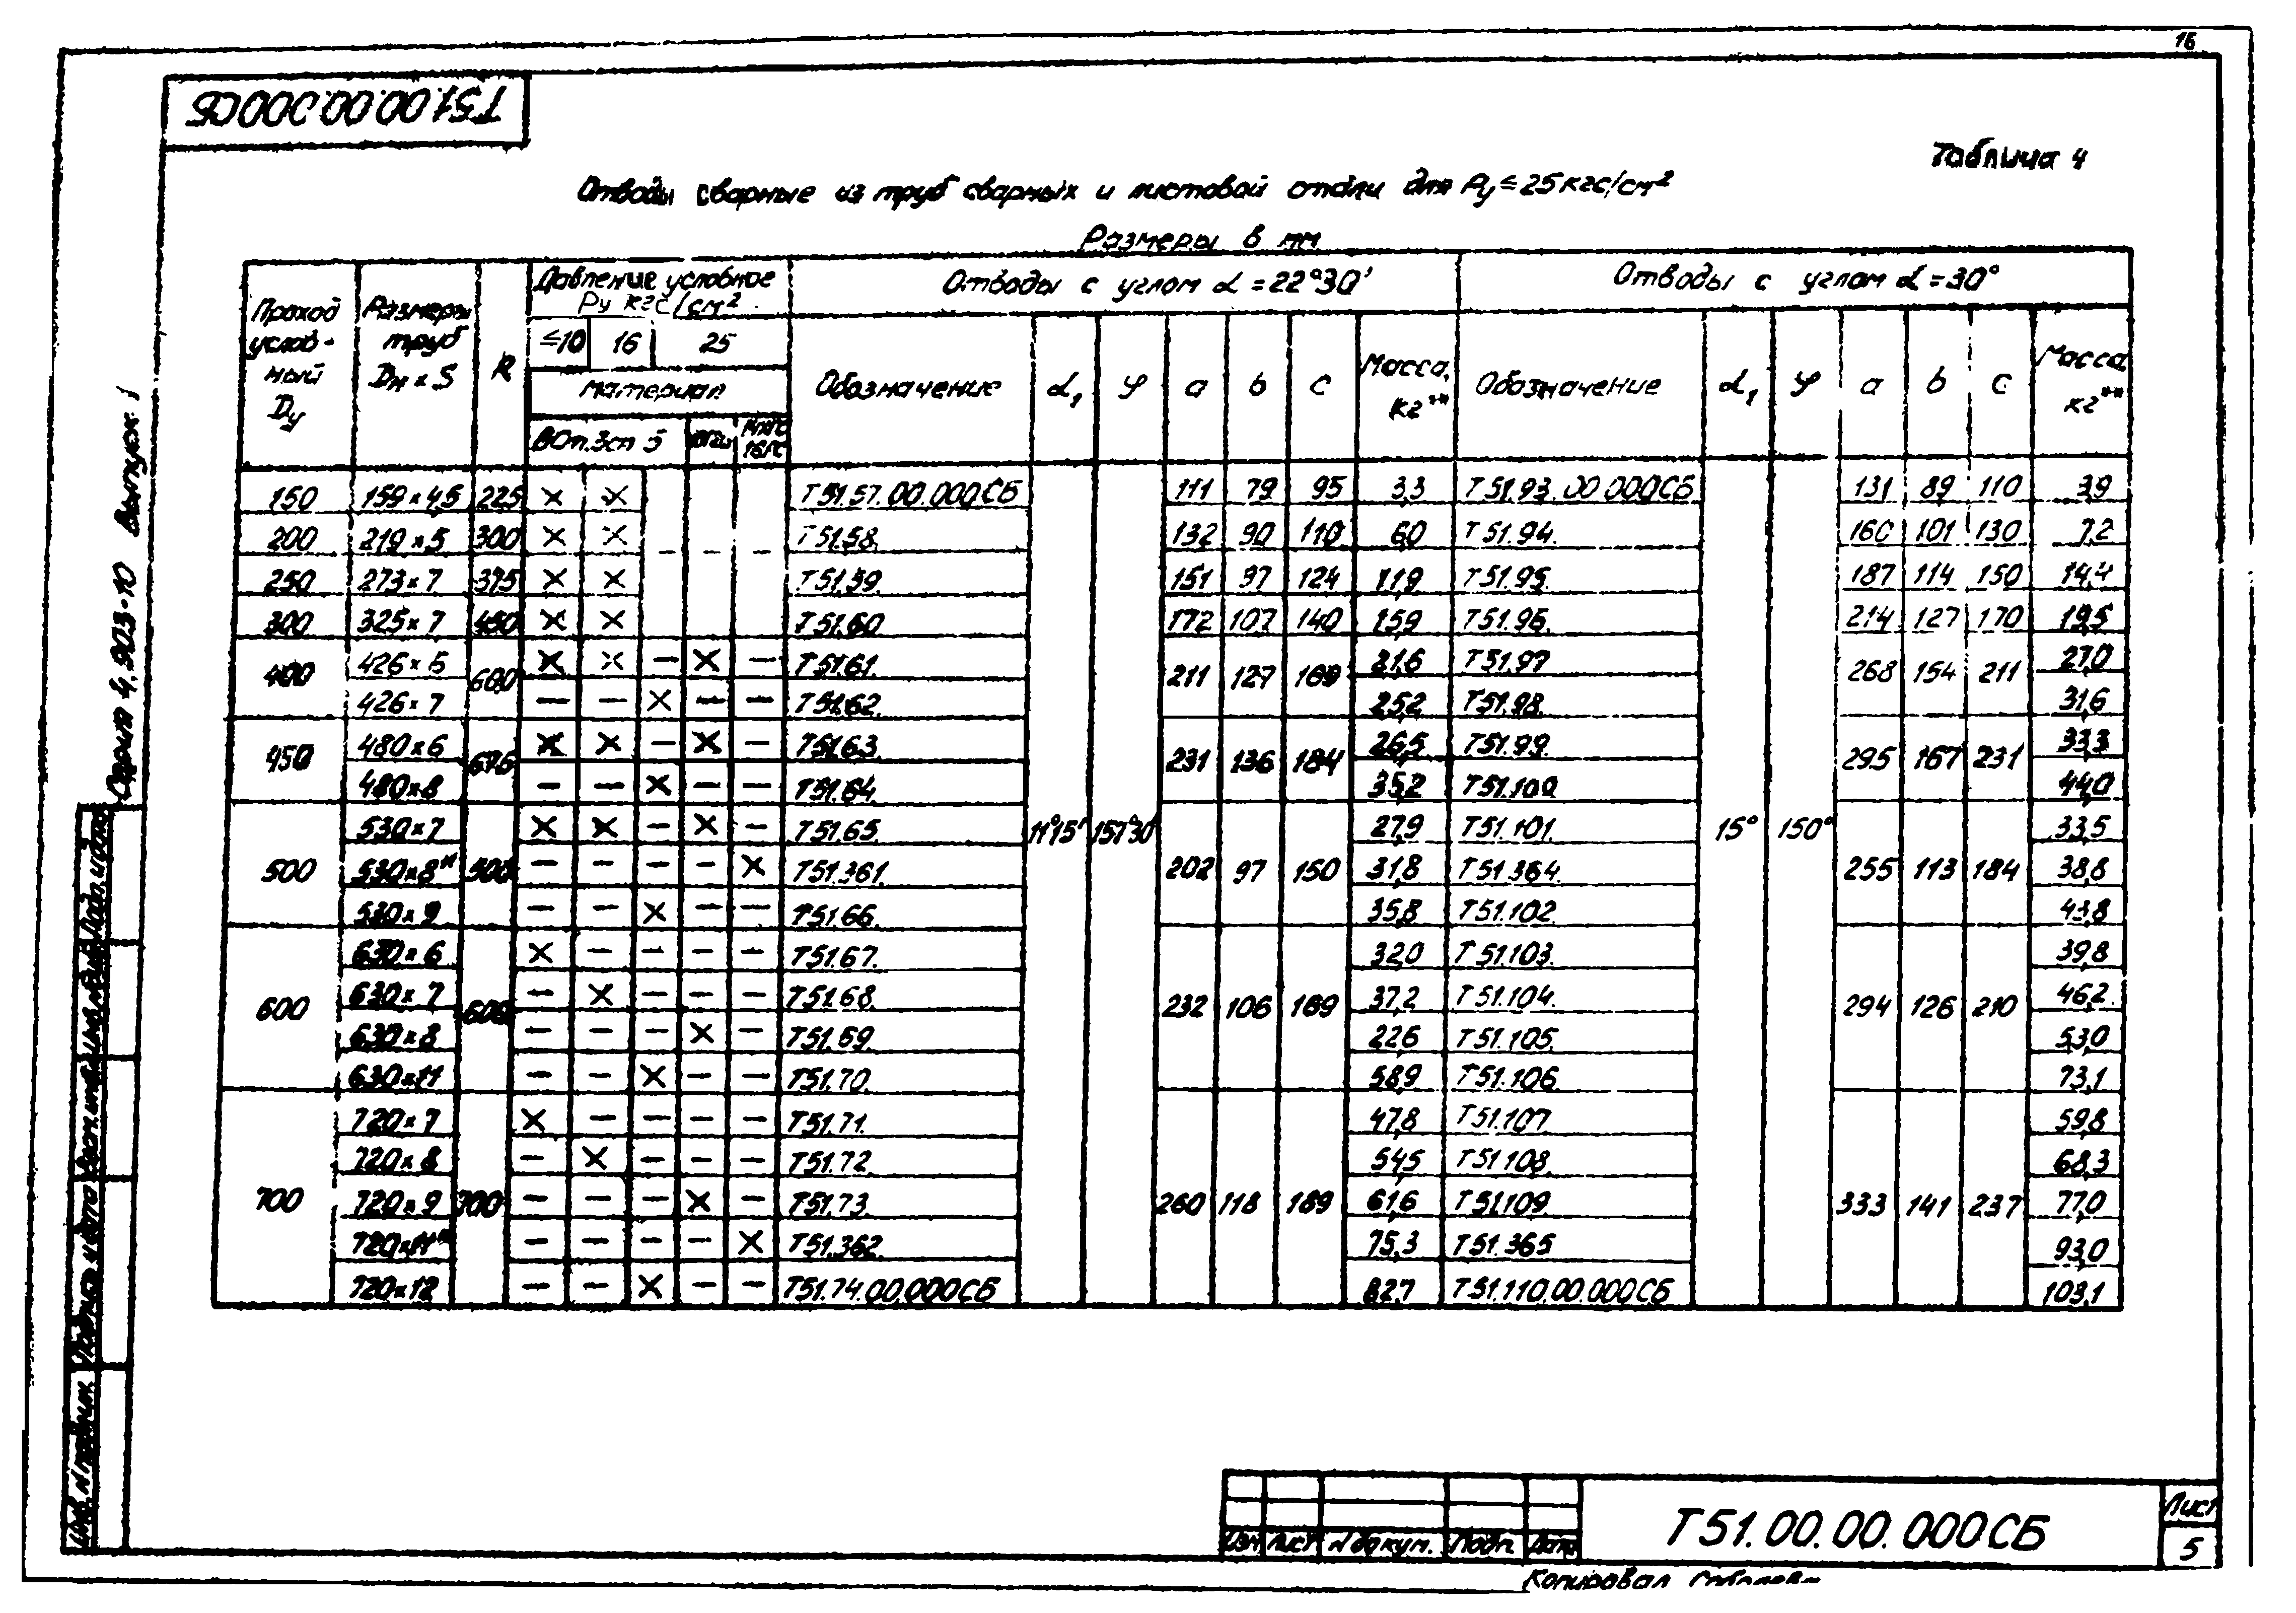 16
Т51.00.00.000СБ
Таблица 4
Отводы сварные из труб сварных и листовой стали для Ру ≤ 25 кгс/см²
Размеры в мм
Проход услов- ный Dу
Размеры труб Dн × S
R
Давление условное Ру кгс/см²
Отводы с углом α = 22°30'
Отводы с углом α = 30°
≤10 16 25
Материал
ВСт.3сп 5 17ГС 16ГС
Обозначение α₁ φ a b c Масса, кг** Обозначение α₁ φ a b c Масса кг**
150 159×4,5 225 × × Т51.57.00.000СБ 111 79 95 3,3 Т51.93.00.000СБ 131 89 110 3,9
200 219×5 300 × × — — — Т51.58. 132 90 110 6,0 Т51.94. 160 101 130 7,2
250 273×7 375 × × Т51.59. 151 97 124 11,9 Т51.95. 187 114 150 14,4
300 325×7 450 × × Т51.60 172 107 140 15,9 Т51.96. 214 127 170 19,5
400 426×6 600 × × — × — Т51.61. 211 127 169 21,6 Т51.97 268 154 211 27,0
426×7 — — × — — Т51.62. 25,2 Т51.98. 31,6
450 480×6 675 × × — × — Т51.63. 231 136 184 26,5 Т51.99. 295 167 231 33,3
480×8 — — × — — Т51.64. 35,2 Т51.100. 44,0
11°15' 157°30' 15° 150°
500 530×7 500 × × — × — Т51.65. 202 97 150 27,9 Т51.101. 255 113 184 33,5
530×8* — — — — × Т51.361. 31,8 Т51.364. 38,8
530×9 — — × — — Т51.66. 35,8 Т51.102. 43,8
600 630×6 600 × — — — — Т51.67. 232 106 169 32,0 Т51.103. 294 126 210 39,8
630×7 — × — — — Т51.68. 37,2 Т51.104. 46,2
630×8 — — — × — Т51.69. 22,6 Т51.105. 53,0
630×11 — — × — — Т51.70. 58,9 Т51.106 73,1
700 720×7 700 × — — — — Т51.71. 260 118 189 47,8 Т51.107 333 141 237 59,8
720×8 — × — — — Т51.72. 54,5 Т51.108. 68,3
720×9 — — — × — Т51.73. 61,6 Т51.109 77,0
720×11* — — — — × Т51.362. 75,3 Т51.365 93,0
720×12 — — × — — Т51.74.00.000СБ 82,7 Т51.110.00.000СБ 103,1
Серия 4.903-10 Выпуск 1
Инв. N подлин. Подпись и дата Взам. инв.
Изм Лист N докум. Подп. Дата
Т51.00.00.000СБ
Лист
5
Копировал